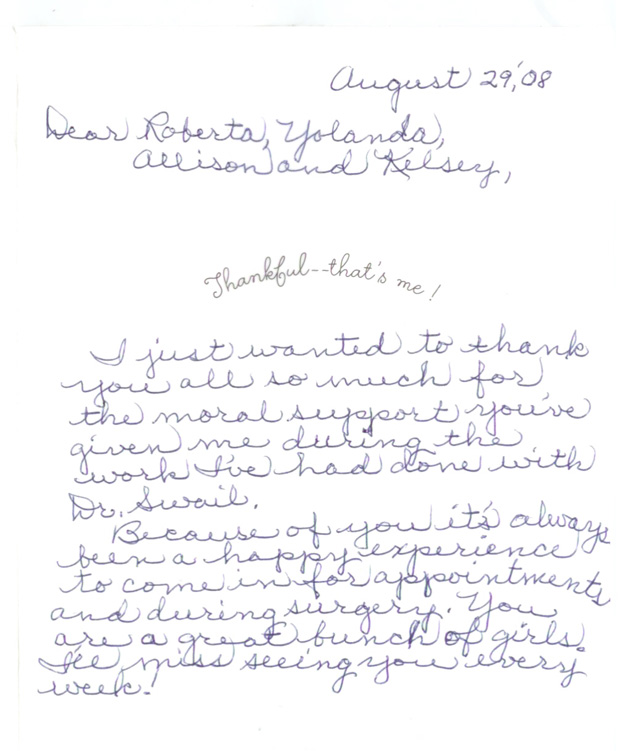 August 29,'08
Dear Roberta, Yolanda,
Allison and Kelsey,
Thankful--that's me!
I just wanted to thank
you all so much for
the moral support you've
given me during the
work I've had done with
Dr. Swail.
Because of you it's always
been a happy experience
to come in for appointments
and during surgery. You
are a great bunch of girls.
I'll miss seeing you every
week!